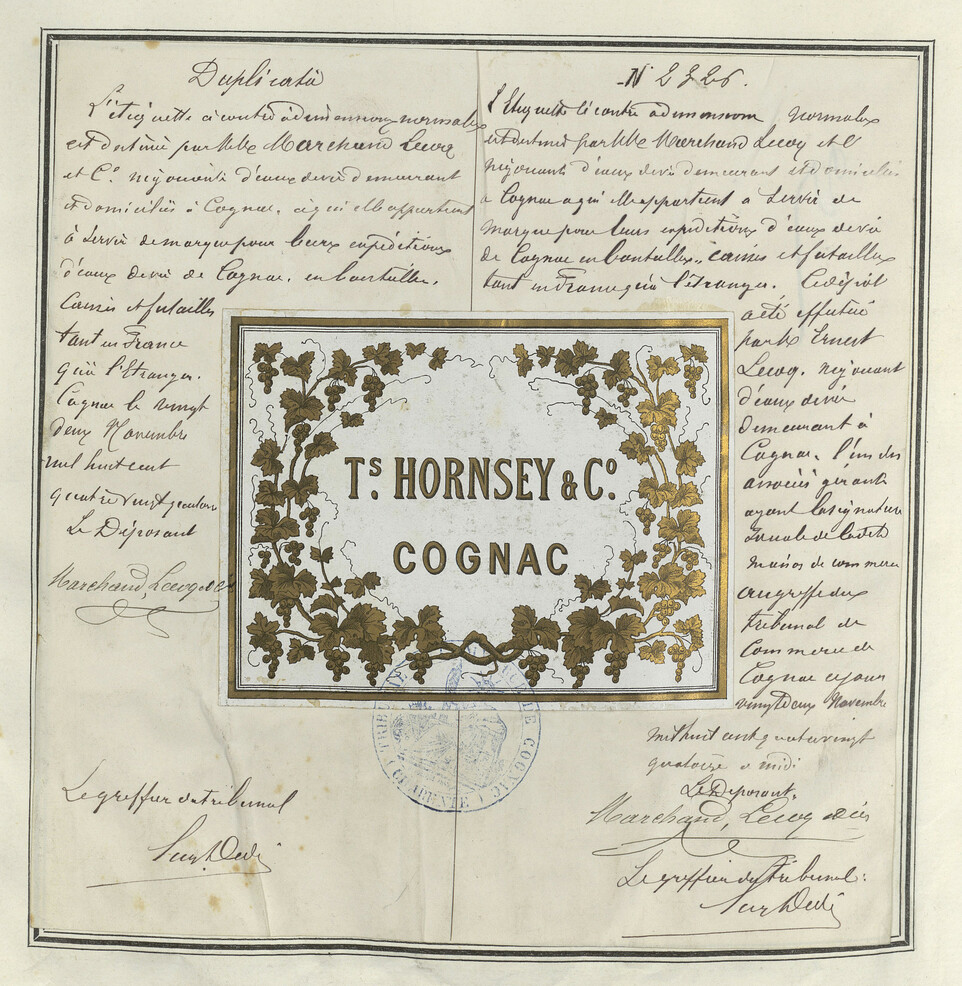 Duplicata
L'étiquette ci contre à dimensions normales
est destinée par MM. Marchand Lecoq
et Cie. négociants d'eaux de vie demeurant
et domiciliés à Cognac, à qui elle appartient
à servir de marque pour leurs expéditions
d'eaux de vie de Cognac, en bouteilles,
caisses et futailles
tant en France
qu'à l'Etranger.
Cognac le vingt
deux Novembre
mil huit cent
quatre vingt quatorze
Le Déposant
Marchand, Lecoq & Cie
Le greffier du tribunal
N° 2326.
L'Etiquette ci contre à dimension normales
est destinée par MM Marchand Lecoq et Cie
négociants d'eaux de vie demeurant et domiciliés
à Cognac à qui elle appartient à servir de
marque pour leurs expéditions d'eaux de vie
de Cognac en bouteilles, caisses et futailles
tant en France qu'à l'étranger. Ce dépôt
a été effectué
par M. Ernest
Lecoq, négociant
d'eaux de vie
demeurant à
Cognac, l'un des
associés gérants
ayant la signature
sociale de la dite
maison de commerce
au greffe du
tribunal de
Commerce de
Cognac ce jour
vingt deux Novembre
mil huit cent quatre vingt
quatorze à midi
Le Déposant,
Marchand, Lecoq & Cie
Le greffier du tribunal:
Ts. HORNSEY & Co.
COGNAC
TRIBUNAL DE COMMERCE DE COGNAC
(CHARENTE)